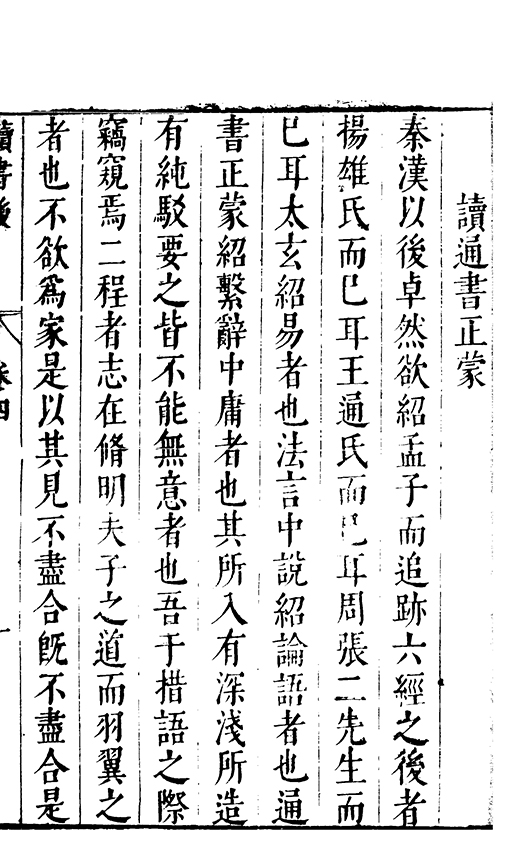 讀通書正蒙
秦漢以後卓然欲紹孟子而追跡六經之後者
揚雄氏而已耳王通氏而已耳周張二先生而
已耳太玄紹易者也法言中說紹論語者也通
書正蒙紹繫辭中庸者也其所入有深淺所造
有純駁要之皆不能無意者也吾于措語之際
竊窺焉二程者志在脩明夫子之道而羽翼之
者也不欲爲家是以其見不盡合旣不盡合是
讀書後 卷四